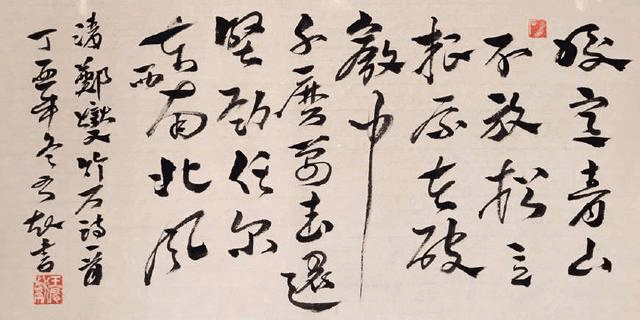 咬定青山
不放松立
根原在破
岩中
千磨万击还
坚劲任尔
东西南北风
清郑燮竹石诗一首
丁酉年冬